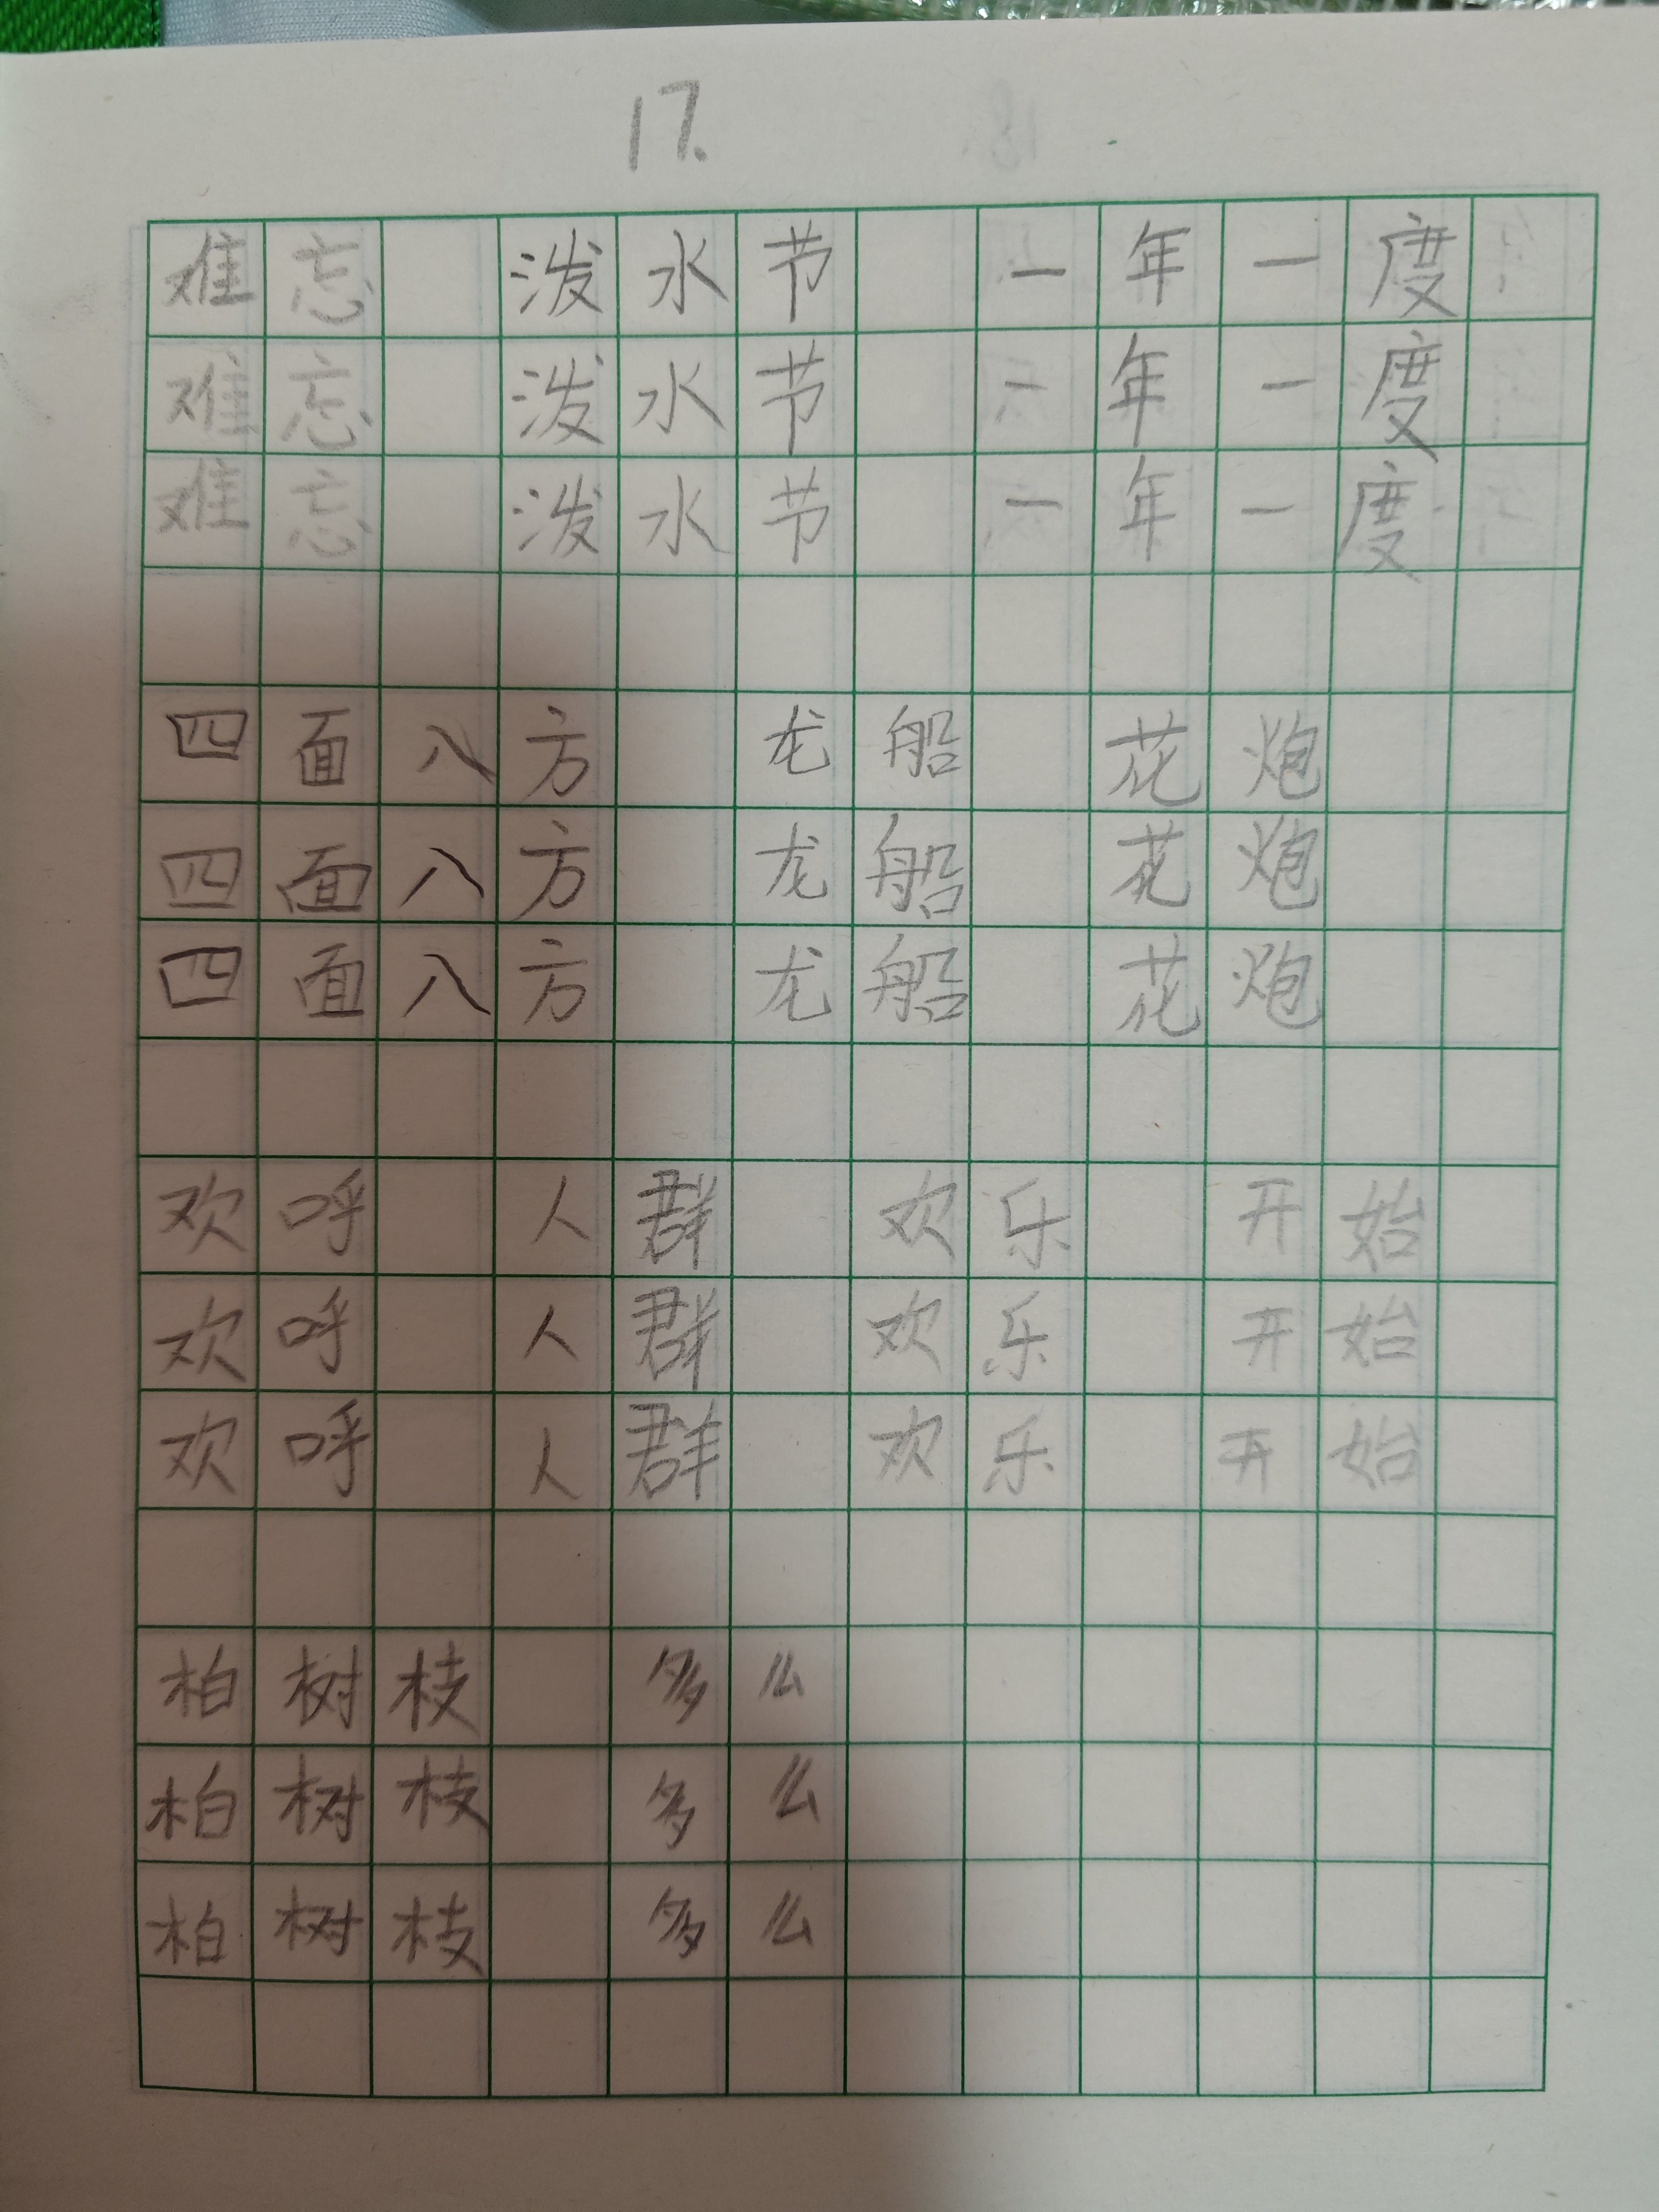 17.
难忘 泼水节 一年一度
难忘 泼水节 一年一度
难忘 泼水节 一年一度
四面八方 龙船 花炮
四面八方 龙船 花炮
四面八方 龙船 花炮
欢呼 人群 欢乐 开始
欢呼 人群 欢乐 开始
欢呼 人群 欢乐 开始
柏树枝 多么
柏树枝 多么
柏树枝 多么